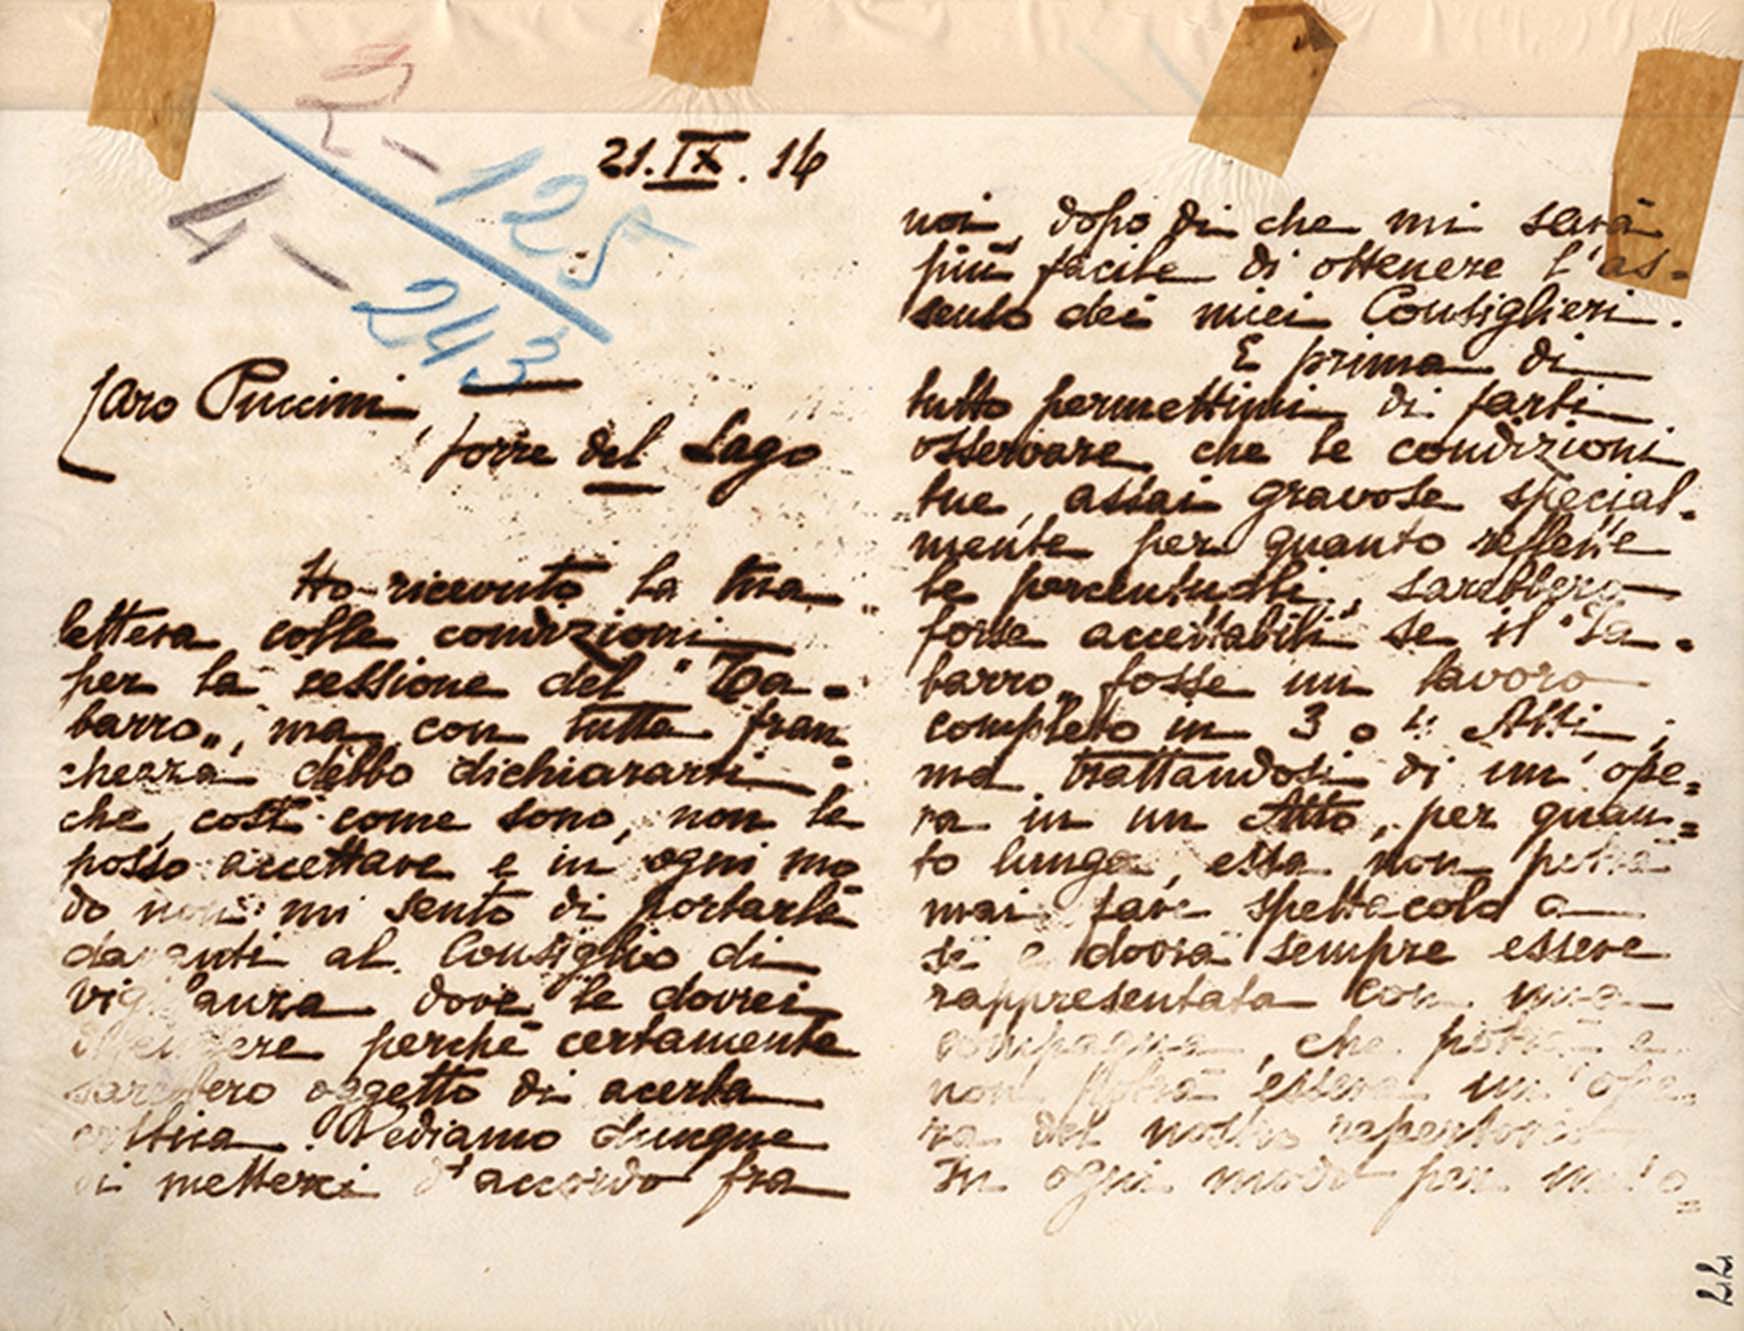 2-125
4-243
21.IX.14
Caro Puccini,
Torre del Lago
Ho ricevuto la tua
lettera colle condizioni
per la cessione del "Ta=
barro„, ma con tutta fran=
chezza debbo dichiararti
che, così come sono, non le
posso accettare e in ogni mo
do non mi sento di portarle
davanti al Consiglio di
Vigilanza dove le dovrei
perchè certamente
sarebbero oggetto di acerba
critica. Vediamo dunque
di metterci d'accordo fra
noi, dopo di che mi sarà
più facile di ottenere l'as=
senso dei miei Consiglieri.
E prima di
tutto permettimi di farti
osservare che le condizioni
tue, assai gravose special=
mente per quanto reflette
le percentuali, sarebbero
forse accettabili se il "Ta=
barro„ fosse un lavoro
completo in 3 o 4 Atti;
ma trattandosi di un'ope=
ra in un Atto, per quan=
to lunga, essa non potrà
mai fare spettacolo a
sè e dovrà sempre essere
rappresentata con una
compagna, che potrà e
non potrà essere un'ope=
ra del nostro repertorio.
In ogni modo per un'o=
77